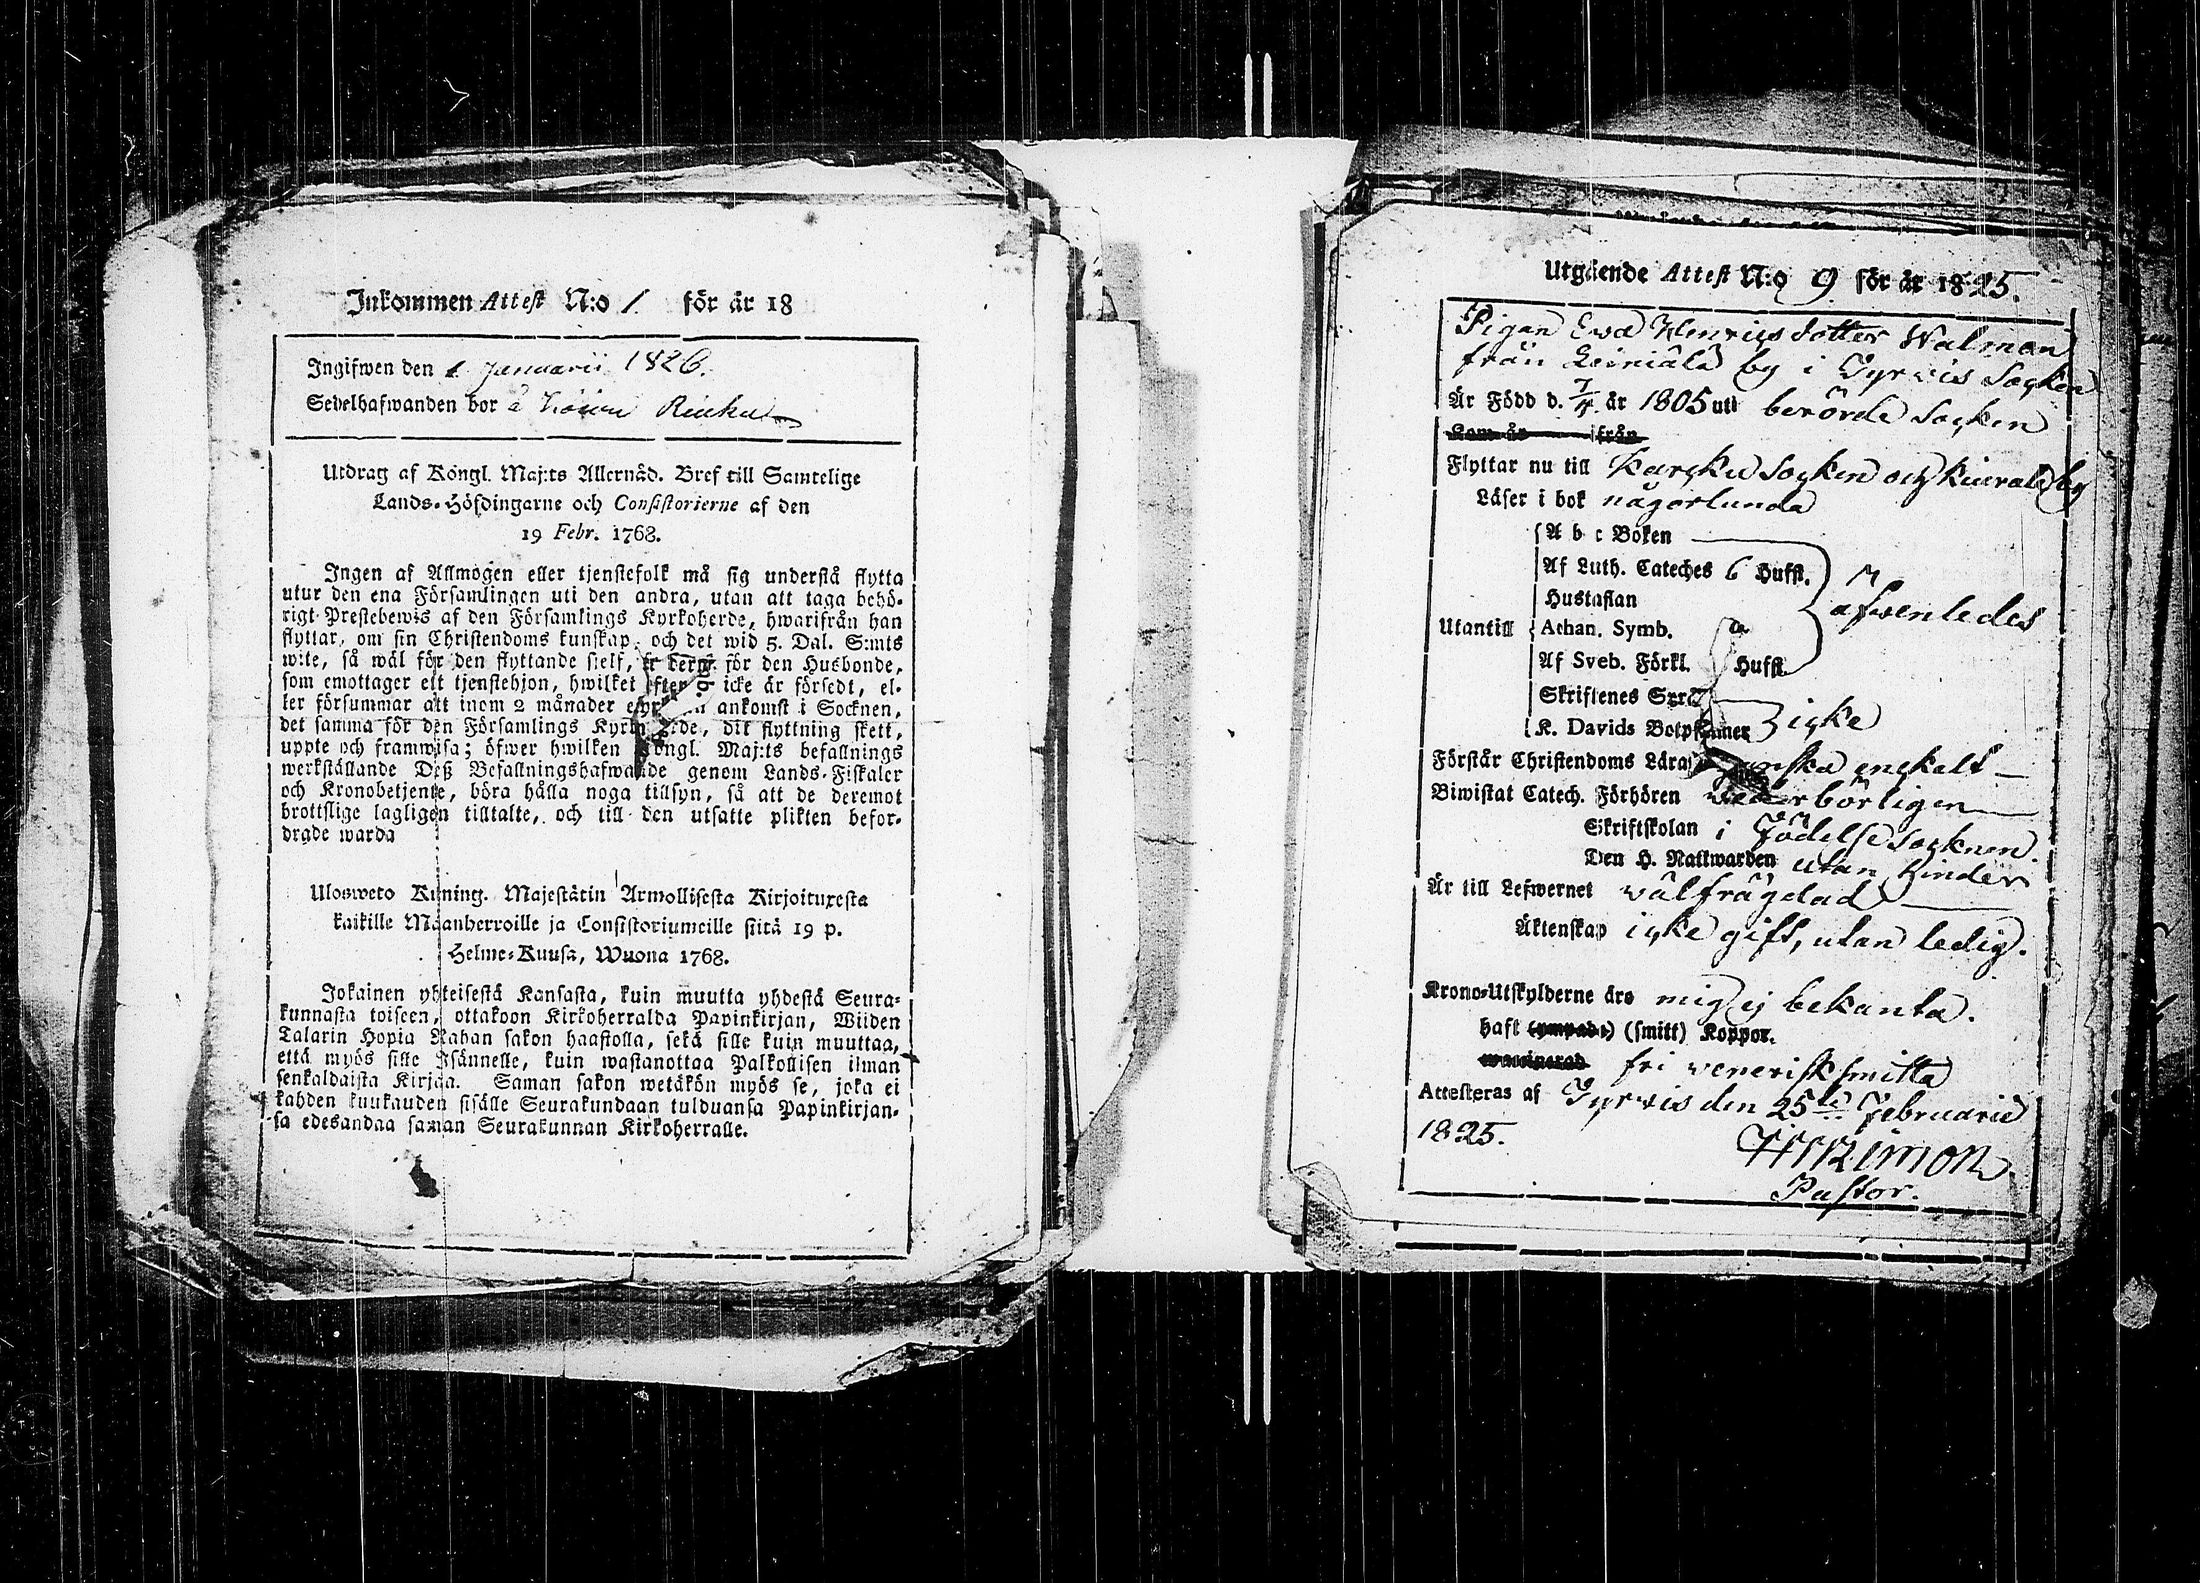 Inkommen Attest N:o 1. för år 18
Ingifwen den 1 Januarii 1826.
Sedelhafwanden bor å
Utdrag af Kongl. Maj:ts Allernåd. Bref till Samtelige
Lands-Höfdingarne och Consistorierne af den
19 Febr. 1768.
Ingen af Allmogen eller tjenstefolk må sig understå flytta
utur den ena Församlingen uti den andra, utan att taga behö-
rigt Prestebewis af den Församlings Kyrkoherde, hwarifrån han
flyttar, om sin Christendoms kunskap, och det wid 5. Dal. S:mts
wite, så wäl för den flyttande sjelf, för den Husbonde,
som emottager ett tjenstehjon, hwilket icke är försedt, el-
ler försummar att inom 2 månader ankomst i Socknen,
det samma för den Församlings dit flyttning skett,
uppte och framwisa; öfwer hwilken Kongl. Maj:ts befallnings
werkställande Deß Befallningshafwande genom Lands-Fiskaler
och Kronobetjente, böra hålla noga tillsyn, så att de deremot
brottslige lagligen tilltalte, och till den utsatte plikten befor-
drade warda
Ulosweto Kuning. Majestätin Armollisesta Kirjoituxesta
kaikille Maanherroille ja Consistoriumeille siitä 19 p.
Helme-Kuusa, Wuona 1768.
Jokainen yhteisestä Kansasta, kuin muutta yhdestä Seura-
kunnasta toiseen, ottakoon Kirkoherralda Papinkirjan, Wiiden
Talarin Hopia Rahan sakon haastolla, sekä sille kuin muuttaa,
että myös sille Isännelle, kuin wastanottaa Palkollisen ilman
senkaldaista Kirjaa. Saman sakon wetäkön myös se, joka ei
kahden kuukauden sisälle Seurakundaan tulduansa Papinkirjan-
sa edesandaa saman Seurakunnan Kirkoherralle.
Utgående Attest N:o 9 för år 1825.
Pigan Ewa Henricsdotter Walman
från by i Tyrvis Socken
Är Född d. 7/4 år 1805 uti berörde Socken
Kom år från
Flyttar nu till Karcku Socken och Kiurala by
Läser i bok någorlunda
A b c Boken
Af Luth. Cateches 6 Hufst.
Hustaflan
Utantill Athan. Symb. äfwenledes
Af Sveb. Förkl. Hufst.
Skriftenes Spr
K. Davids Botpsalmer icke
Förstår Christendoms Lära ganska enskalt
Biwistat Catech. Förhören wederbörligen
Skriftskolan i Födelse socknen.
Den H. Nattwarden utan hinder
Är till Lefwernet wälfrägdad
Äktenskap icke gift, utan ledig.
Krono-Utskylderne äro mig ej bekanta.
haft (ympade) (smitt) Koppor.
waccinerad fri venerisk smitta
Attesteras af Tyrvis den 25te Februarii
1825.
Pastor.